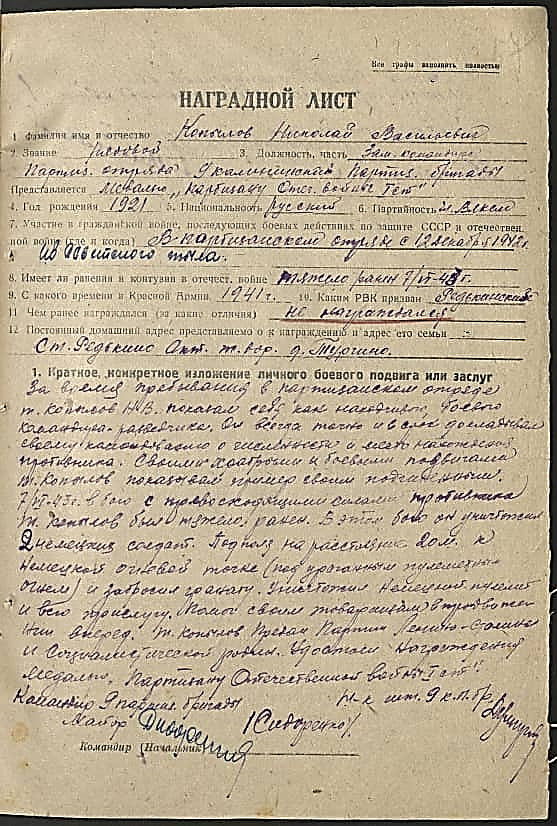 Все графы заполнять полностью
НАГРАДНОЙ ЛИСТ
1. Фамилия имя и отчество Копылов Николай Васильевич
2. Звание Рядовой 3. Должность, часть Зам. командира
Партиз. отряда 9 калининской Партиз. бригады
Представляется Медалью "Партизану Отеч. войны I ст"
4. Год рождения 1921 5. Национальность русский 6. Партийность чл. ВЛКСМ
7. Участие в гражданской войне, последующих боевых действиях по защите СССР и отечествен-
ной войне (где и когда) В партизанском отряде с 12 декабря 1942 г.
из советского тыла.
8. Имеет ли ранения и контузии в отечест. войне тяжело ранен 7/VI-43 г.
9. С какого времени в Красной Армии 1941 г. 10. Каким РВК призван Редькинским
11 Чем ранее награждался (за какие отличия) не награждался
12 Постоянный домашний адрес представляемого к награждению и адрес его семьи
Ст. Редькино Окт. ж. дор. д. Тургино.
1. Краткое, конкретное изложение личного боевого подвига или заслуг
За время пребывания в партизанском отряде
т. Копылов Н.В. показал себя как находчивого, боевого
командира-разведчика. Он всегда точно и в срок докладывал
своему командованию о численности и месте нахождения
противника. Своими храбрыми и боевыми подвигами
т. Копылов показывал пример своим подчиненным.
7/VI-43 г. в бою с превосходящими силами противника
т. Копылов был тяжело ранен. В этом бою он уничтожил
2 немецких солдат. Подполз на расстояние 20 м. к
немецкой огневой точке (под ураганным пулеметным
огнем) и забросил гранату. Уничтожил немецкий пулемет
и его прислугу. Помог своим товарищам в продвиже-
нии вперед. т. Копылов Предан Партии Ленина-Сталина
и Социалистической родине. Удостоен награждения
медалью "Партизану Отечественной войны I ст".
Командир 9 партиз. бригады Н-к шт. 9 к.п. бр.
Майор /Сидоренко/
Командир (Начальник)